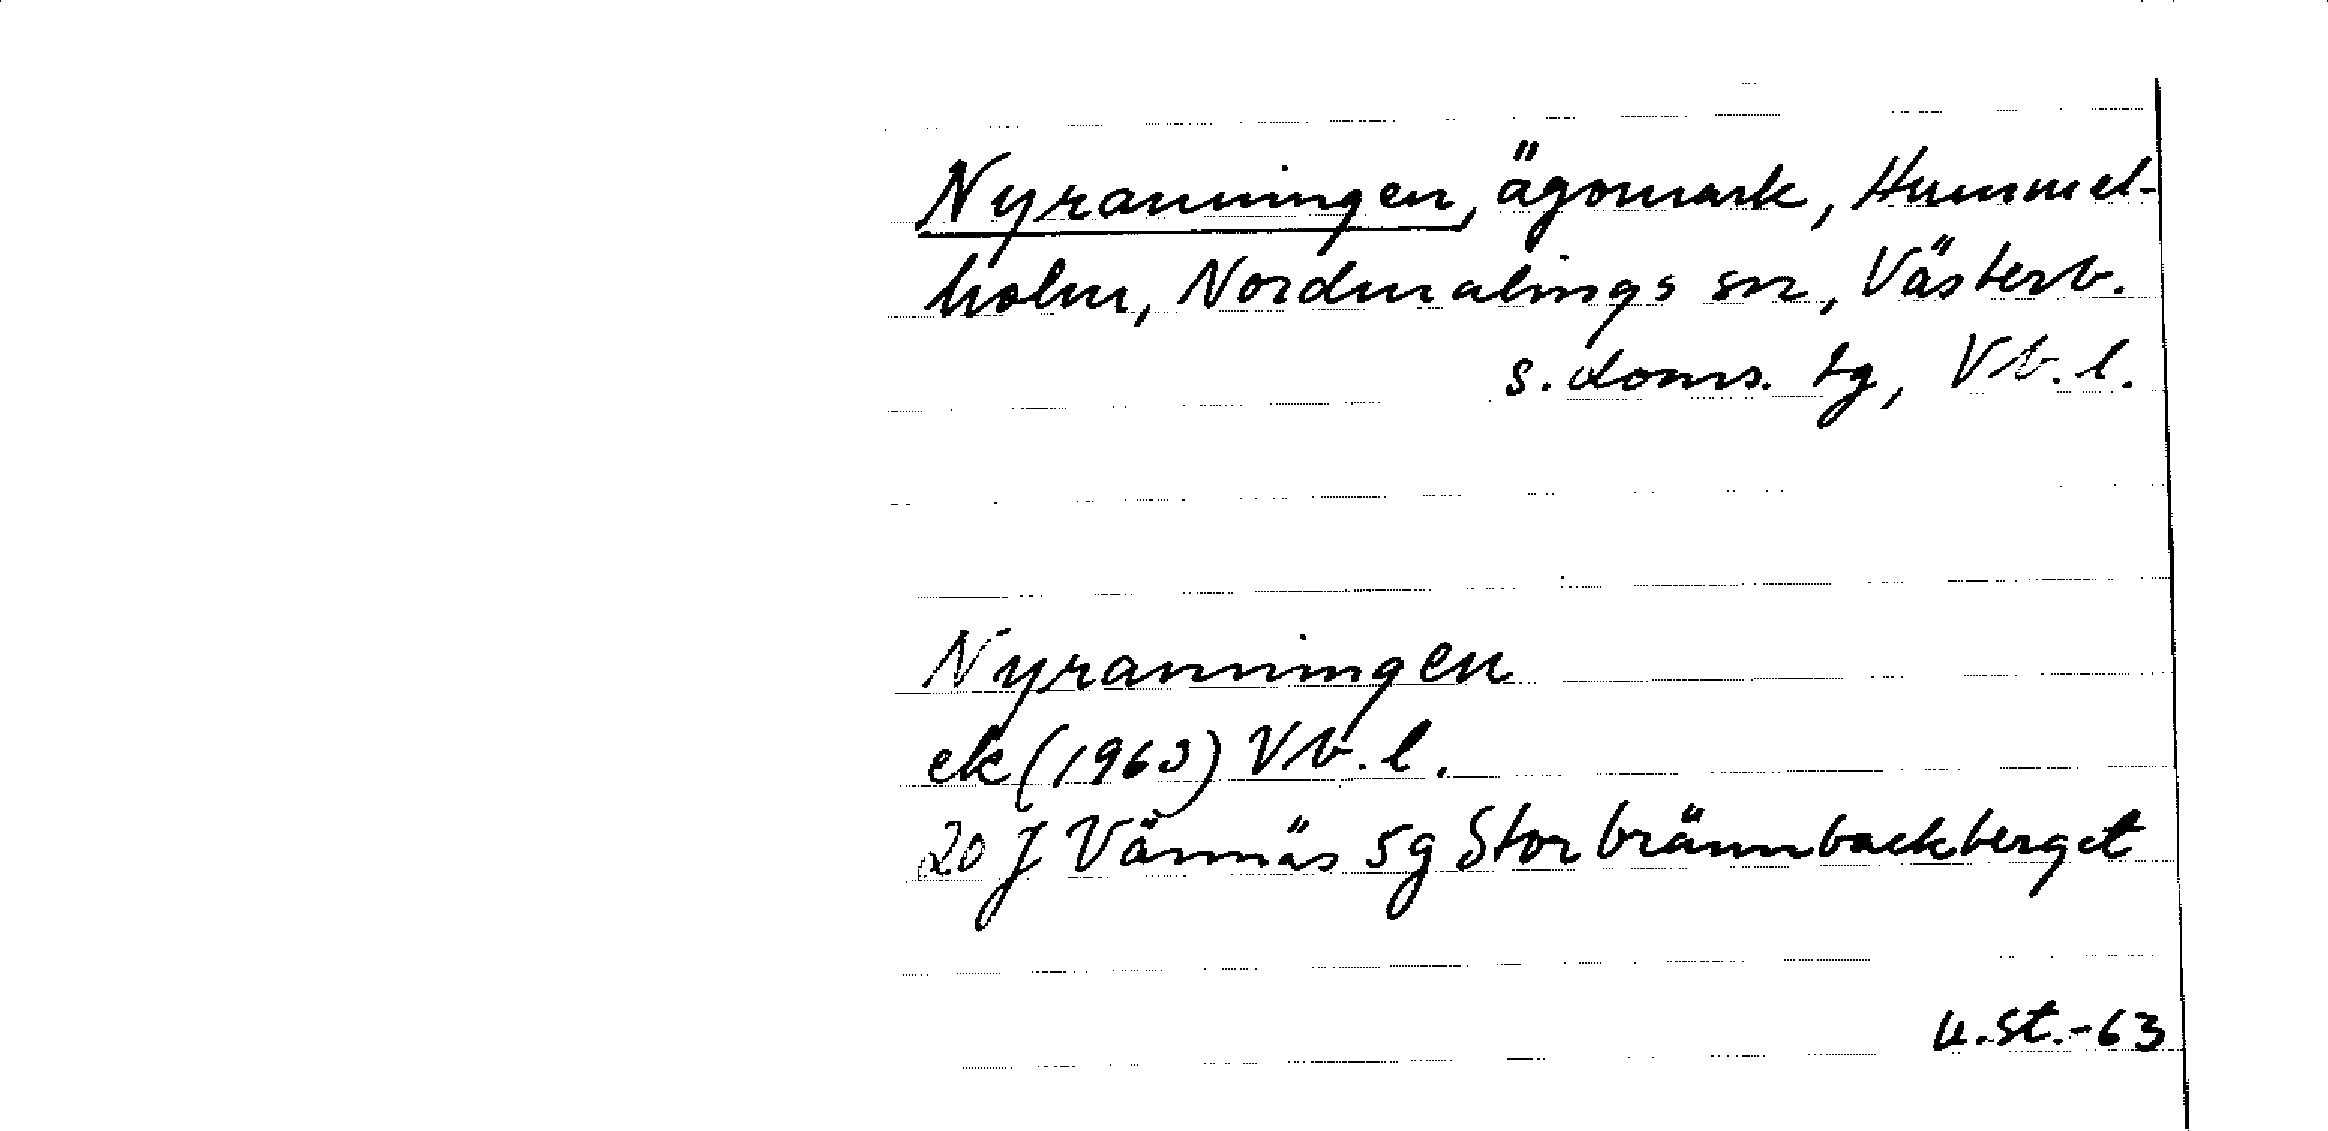 Nyranningen, ägomark, Hummel-
holm, Nordmalings sn, Västerb.
s. doms. tg, Vb. l.
Nyranningen
ek (1963) Vb. l.
20 J Vännäs 5g Storbrännbackberget
u.st.-63